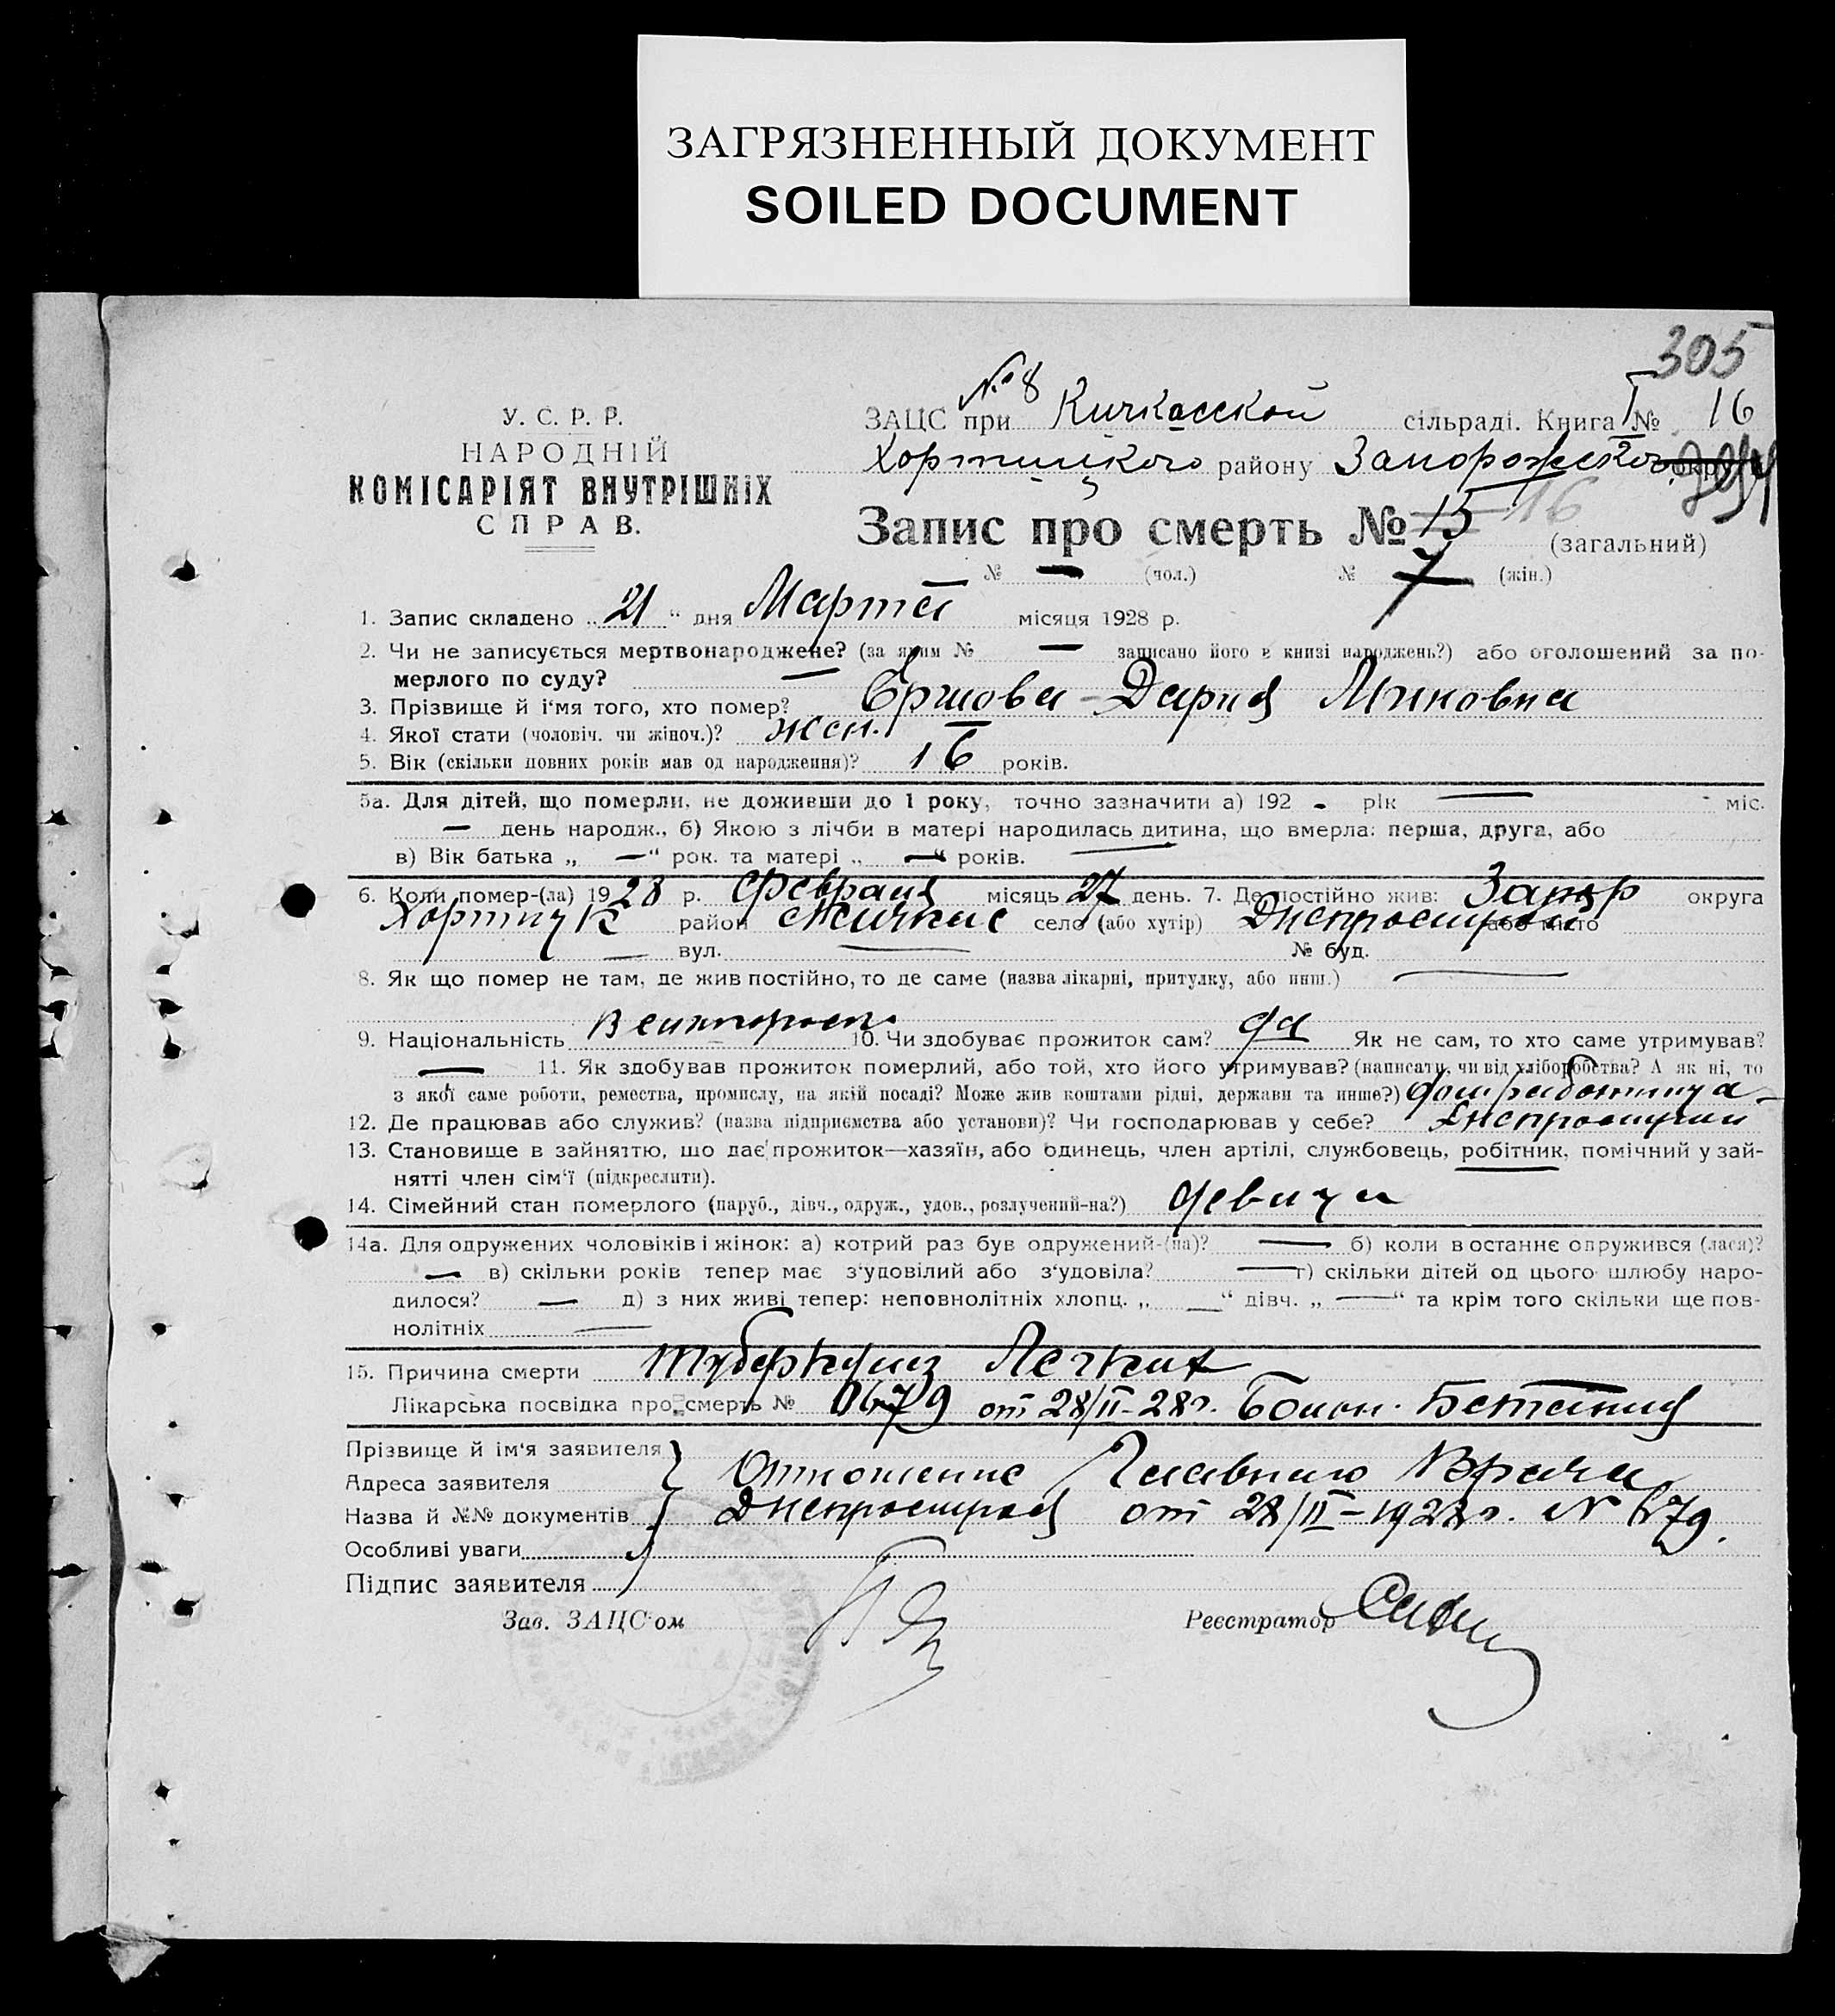 ЗАГРЯЗНЕННЫЙ ДОКУМЕНТ
SOILED DOCUMENT
305
У. С. Р. Р.
НАРОДНІЙ
КОМІСАРІЯТ ВНУТРІШНІХ
СПРАВ.
№ 8
ЗАЦС при Кичкасской сільраді. Книга I № 16
Хортицкого району Запорожского
Запис про смерть № 15 16 (загальний)
№ — (чол.) № 7 (жін.)
1. Запис складено „21“ дня Марта місяця 1928 р.
2. Чи не записується мертвонароджене? (за яким № — записано його в книзі народжень?) або оголошений за по-
мерлого по суду? —
3. Прізвище й і'мя того, хто помер? Ершова - Дария Миновна
4. Якої стати (чоловіч. чи жіноч.)? жен.
5. Вік (скільки повних років мав од народження)? 16 років.
5а. Для дітей, що померли, не доживши до 1 року, точно зазначити а) 192 - рік — міс.
— день народж., б) Якою з лічби в матері народилась дитина, що вмерла: перша, друга, або
в) Вік батька „ —“ рок. та матері „ —“ років. —
6. Коли помер-(ла) 1928 р. Февраля місяць 27 день. 7. Де постійно жив: Запор округа
Хортицк район Кичкас село (або хутір) Днепрострой або місто
— вул. — № буд.
8. Як що помер не там, де жив постійно, то де саме (назва лікарні, притулку, або инш.) —
9. Національність Великорос. 10. Чи здобуває прожиток сам? да Як не сам, то хто саме утримував?
— 11. Як здобував прожиток померлий, або той, хто його утримував? (написати, чи від хліборобства? А як ні, то
з якої саме роботи, ремества, промислу, на якій посаді? Може жив коштами рідні, держави та инше?) домработница -
12. Де працював або служив? (назва підприємства або установи)? Чи господарював у себе? Днепрострой
13. Становище в зайняттю, що дає прожиток—хазяїн, або одинець, член артілі, службовець, робітник, помічний у зай-
нятті член сім'ї (підкреслити).
14. Сімейний стан померлого (паруб., дівч., одруж., удов., розлучений-на?) девица
14а. Для одружених чоловіків і жінок: а) котрий раз був одружений-(на)? — б) коли востаннє одружився (лася)?
— в) скільки років тепер має з'удовілий або з'удовіла? — г) скільки дітей од цього шлюбу наро-
дилося? — д) з них живі тепер: неповнолітніх хлопц. „ —“ дівч. „ —“ та крім того скільки ще пов-
нолітніх —
15. Причина смерти Туберкулиз Легких
Лікарська посвідка про смерть № 0679 от 28/II-28г. Больн. Бетания
Прізвище й ім'я заявителя
Адреса заявителя Отношение Главного Врача
Назва й №№ документів Днепростроя от 28/II-1928г. № 679.
Особливі уваги
Підпис заявителя
Зав. ЗАЦС'ом Реєстратор